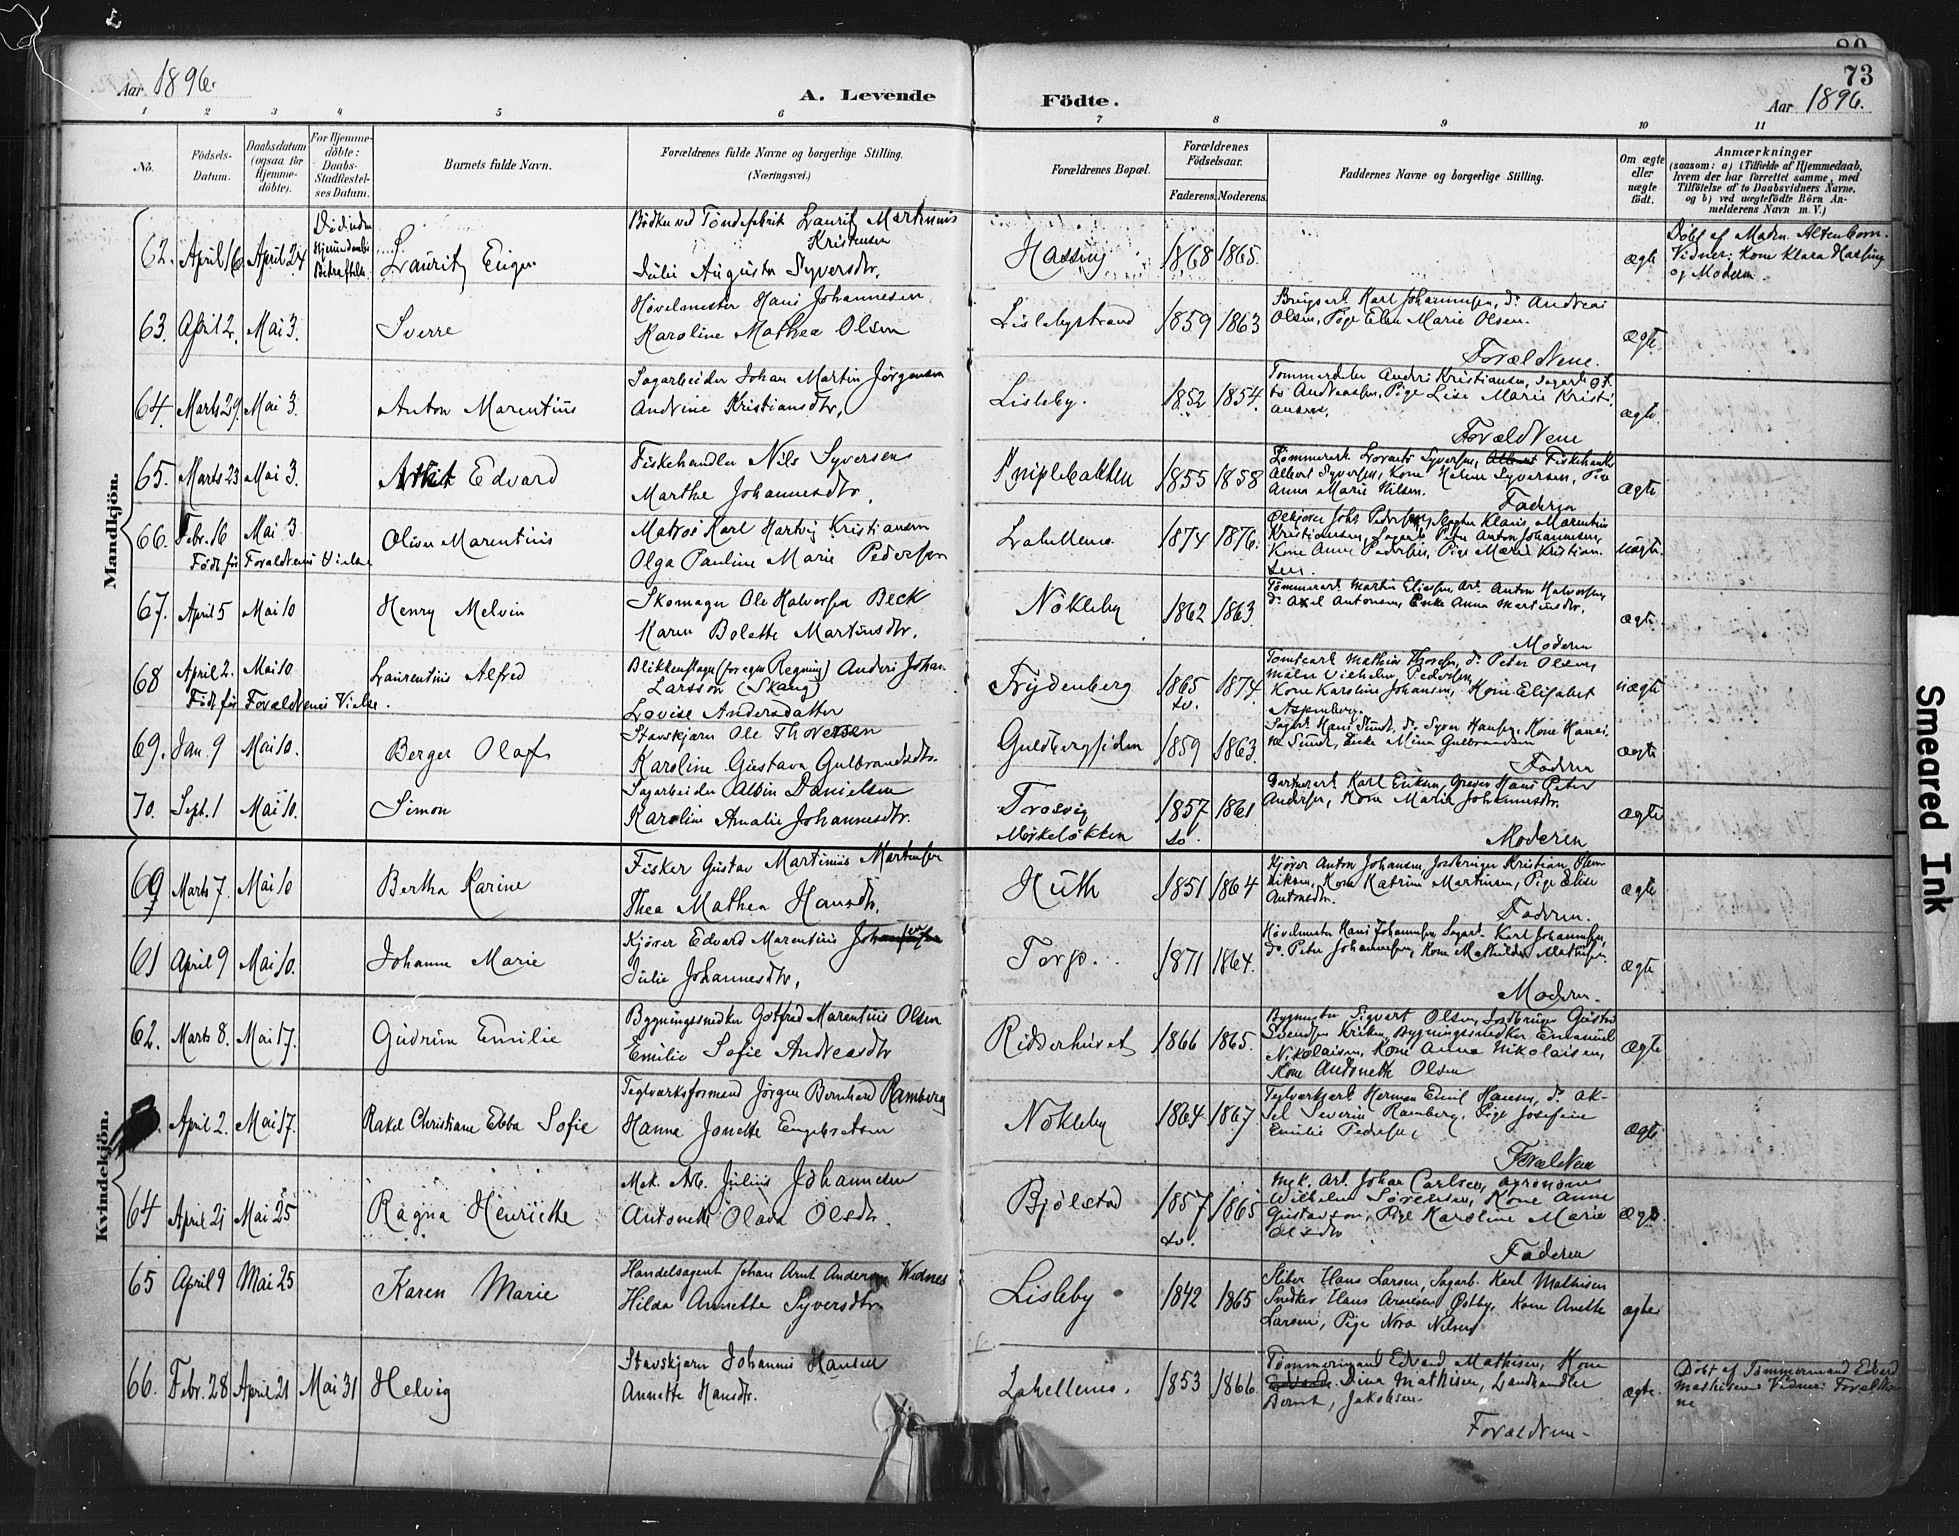 80
73
Aar 1896.
A. Levende Födte.
Aar 1896.
1 2 3 4 5 6 7 8 9 10 11
No.
Födsels-Datum.
Daabsdatum (ogsaa for Hjemmedöbte).
For Hjemmedöbte: Daabs-Stadfæstelses Datum.
Barnets fulde Navn.
Forældrenes fulde Navne og borgerlige Stilling.
(Næringsvei.)
Forældrenes Bopæl.
Forældrenes Födselsaar.
Faderens. Moderens.
Faddernes Navne og borgerlige Stilling.
Om ægte eller uægte födt.
Anmærkninger
(saasom: a) i Tilfælde af Hjemmedaab, hvem der har forrettet samme, med Tilföielse af to Daabsvidners Navne, og b) ved uægtefödte Börn Anmelderens Navn m. V.)
Mandkjön.
62. April 16. April 24 Död inden Hjemmedaabs Bekræftelse Lauritz Eugen
Bödker ved Töndefabrik Lauritz Martinius Kristensen
Julie Augusta Syversdtr.
Hassing 1868 1865. ægte
Döbt af Madm. Altenborn. Vidner: Kone Klara Hassing og Moderen
63. April 2. Mai 3. Sverre
Hövelmester Hans Johannesen
Karoline Mathea Olsen
Lislebystrand 1859 1863
Karl Johannesen, do Andreas Olsen, Pige Elen Marie Olsen.
Forældrene. ægte
64. Marts 29. Mai 3. Anton Marentius
Sagarbeider Johan Martin Jörgensen
Andrine Kristiansdtr.
Lisleby. 1852 1854.
Tömmerdeler Anders Kristiansen, Pige Lise Marie Kristiansen.
Forældrene ægte
65. Marts 23 Mai 3. Edvard
Fiskehandler Nils Syversen
Marthe Johannesdtr.
Kniplebakken 1855 1858
Albert Syversen, Kone Helene Syversen, Pige Anna Marie Nilsen.
Faderen ægte
66. Febr. 16 Mai 3 Oliver Marentius
Födt för Forældrenes Vielse
Matros Karl Hartvig Kristiansen
Olga Pauline Marie Pedersen
Lahellemo 1874 1876.
Klaus Marentius Kristiansen, Sagarb. Peter Anton Johannesen, Kone Anne Pedersen, Pige Maren Kristiansen.
uægte
67. April 5 Mai 10 Henry Melvin
Skomager Ole Halvorsen Beck
Karen Bolette Martinsdtr.
Nökleby 1862 1863.
Tömmerarb. Martin Eliassen, Arb. Anton Halvorsen, do Axel Antonsen, Enke Anna Martinsdtr.
Moderen ægte
68 April 2. Mai 10. Laurentius Alfred
Födt för Forældrenes Vielse.
Blikkenslager (for egen Regning) Anders Johan Larsson (Skaug)
Lovise Andersdatter
Frydenberg 1865 sv. 1874.
Tomtearb. Mathias Thoresen, do Peter Olsen, Maler Vilhelm Pedersen, Kone Karoline Johansen, Kone Elisabet Aspenberg.
uægte
69. Jan. 9 Mai 10. Berger Olaf
Stavskjærer Ole Thoresen
Karoline Gustava Gulbrandsdtr.
Guldbergsiden 1859 1863.
Sagarb. Hans Sundt, do Syver Hansen, Enke Mina Gulbrandsen
Faderen ægte
70. Sept. 1 Mai 10. Simon
Sagarbeider Albin Danielsen
Karoline Amalie Johannesdtr.
Trosvig Mörkelökken 1857 sv. 1861
Karl Eriksen, Graver Hans Peter Andersen, Kone Maria Johannesdtr.
Moderen ægte
Kvindekjön.
60 Marts 7. Mai 10 Bertha Karine
Fisker Gustav Martinius Martinsen
Thea Mathea Hansdtr.
Huth 1851 1864
Kjörer Anton Johansen, Kone Katrine Martinsen, Pige Elise Antonsdtr.
Faderen. ægte
61 April 9 Mai 10. Johanne Marie
Kjörer Edvard Marentius
Julie Johannesdtr.
Torp. 1871 1864.
Hövelmester Hans Johannesen, Sagarb. Karl Johannesen, do Peter Johannesen, Kone Mathilde Mathisen.
Moderen. ægte
62. Marts 8. Mai 17. Gudrun Emilie
Bygningssnedker Gotfred Marentius Olsen
Emilie Sofie Andreasdtr
Ridderhuset 1866 1865.
Bygmester Sigvart Olsen, Jordbruger Gustav Svendsen Kriken, Bygningssnedker Emanuel Nikolaisen, Kone Anna Nikolaisen, Kone Antonette Olsen
ægte
April 2. Mai 17. Rakel Christiane Ebba Sofie
Teglværksformand Jörgen Bernhard Ramberg
Hanna Jonette Engebretsen
Nökleby 1864 1867
Teglverksarb. Herman Emil Hansen, do Aksel Severin Ramberg, Pige Josefine Emilie Pedersen
Forældrene ægte
64 April 21 Mai 25 Ragna Henriette
Mek. Arb. Julius Johannesen
Antonette Olava Olsdtr.
Bjölstad 1857 sv. 1865
Mek. Arb. Johan Carlsen, agronom Wilhelm Sörensen, Kone Anna Gustavson, Pige Karoline Marie Olsdtr
Faderen ægte.
65 April 9 Mai 25 Karen Marie
Handelsagent Johan Arnt Andersen Widnes
Hilda Annette Syversdtr.
Lisleby 1842 1865
Sliber Hans Larsen, Sagarb. Karl Mathisen Snedker Hans Arnesen Östby, Kone Anette Larsen, Pige Nora Nilsen
ægte
66. Febr. 28 April 21 Mai 31 Helvig
Stavskjærer Johannes Hansen
Annette Hansdtr.
Lahellemo. 1853 1866.
Tömmermand Edvard Mathisen, Kone Dina Mathisen, Landhandler Bernt Jakobsen.
Forældrene. ægte.
Döbt af Tömmermand Edvard Mathisen Vidner: Forældrene
Smeared Ink